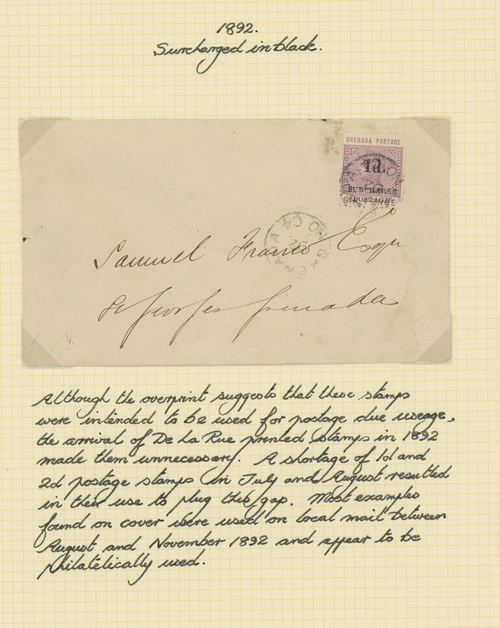 1892.
Surcharged in black.
GRENADA POSTAGE
1d.
SURCHARGE
POSTAGE
GRENADA
Samuel Franco Esqr
St Georges Grenada
Although the overprint suggests that these stamps
were intended to be used for postage due useage,
the arrival of De La Rue printed stamps in 1892
made them unnecessary. A shortage of 1d and
2d postage stamps in July and August resulted
in their use to plug this gap. Most examples
found on cover were used on local mail between
August and November 1892 and appear to be
philatelically used.